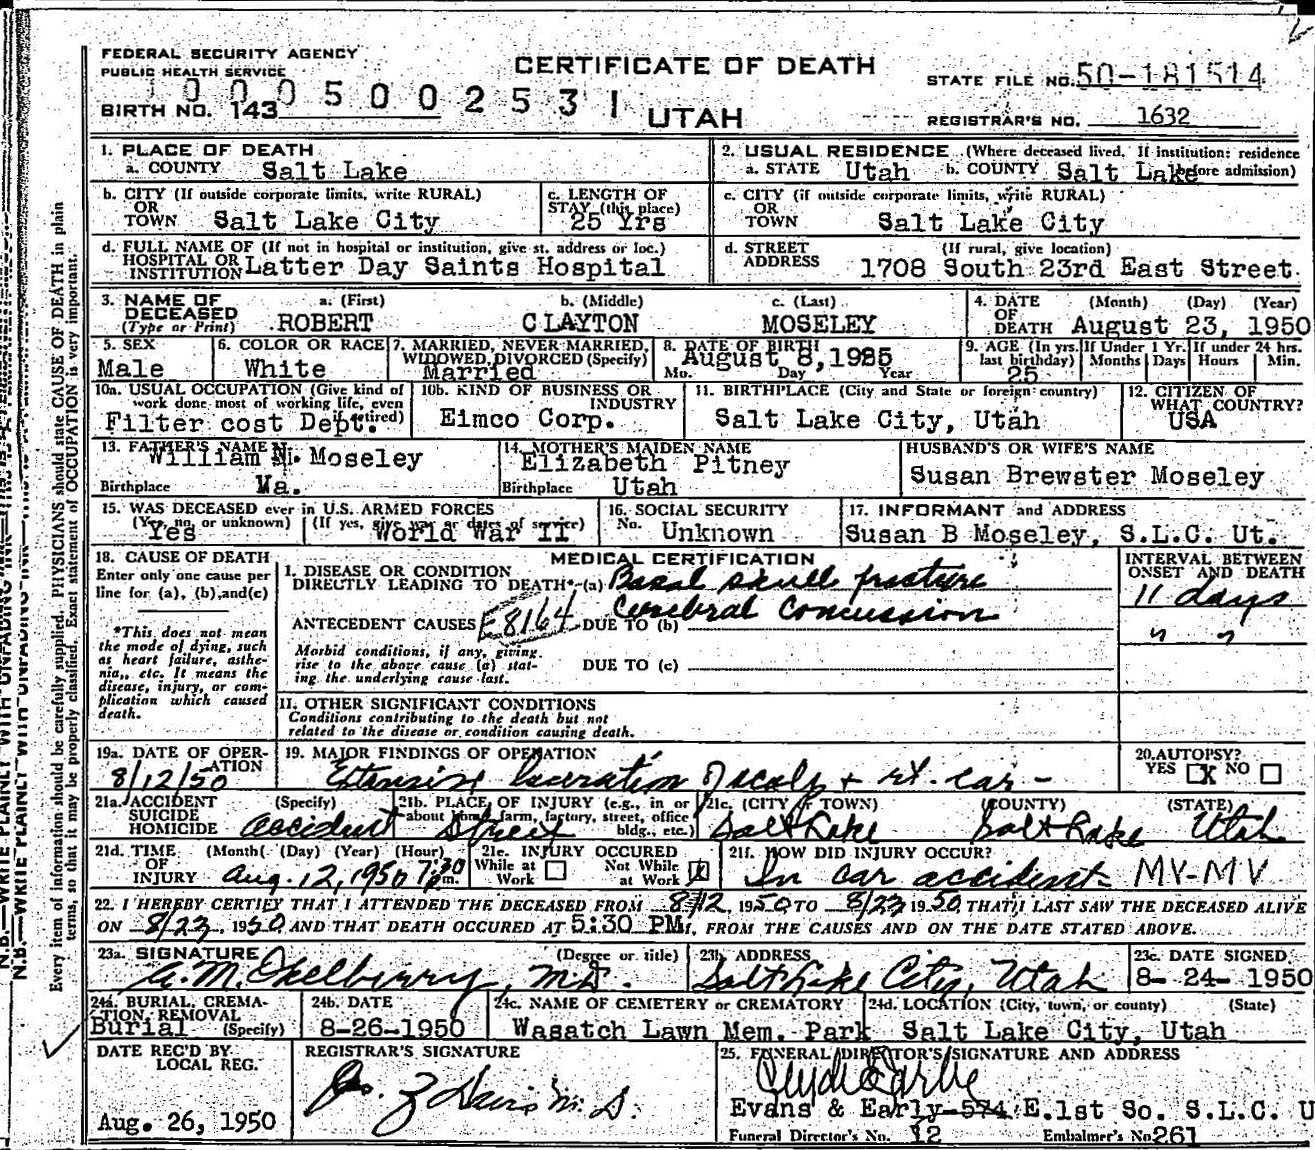 FEDERAL SECURITY AGENCY
PUBLIC HEALTH SERVICE
CERTIFICATE OF DEATH
STATE FILE NO. 50-181514
1 0 0 0 5 0 0 2 5 3 1
BIRTH NO. 143
UTAH
REGISTRAR'S NO. 1632
1. PLACE OF DEATH
a. COUNTY Salt Lake
2. USUAL RESIDENCE (Where deceased lived. If institution: residence before admission)
a. STATE Utah b. COUNTY Salt Lake
b. CITY (If outside corporate limits, write RURAL) OR TOWN Salt Lake City
c. LENGTH OF STAY (this place) 25 Yrs
c. CITY (if outside corporate limits, write RURAL) OR TOWN Salt Lake City
d. FULL NAME OF (If not in hospital or institution, give st. address or loc.) HOSPITAL OR INSTITUTION Latter Day Saints Hospital
d. STREET ADDRESS (If rural, give location) 1708 South 23rd East Street
3. NAME OF DECEASED (Type or Print)
a. (First) ROBERT
b. (Middle) CLAYTON
c. (Last) MOSELEY
4. DATE OF DEATH (Month) (Day) (Year) August 23, 1950
5. SEX Male
6. COLOR OR RACE White
7. MARRIED, NEVER MARRIED, WIDOWED, DIVORCED (Specify) Married
8. DATE OF BIRTH August 8, 1925 Mo. Day Year
9. AGE (In yrs. last birthday) 25
If Under 1 Yr. Months Days
If under 24 hrs. Hours Min.
10a. USUAL OCCUPATION (Give kind of work done most of working life, even if retired) Filter cost Dept.
10b. KIND OF BUSINESS OR INDUSTRY Eimco Corp.
11. BIRTHPLACE (City and State or foreign country) Salt Lake City, Utah
12. CITIZEN OF WHAT COUNTRY? USA
13. FATHER'S NAME William N. Moseley
Birthplace Va.
14. MOTHER'S MAIDEN NAME Elizabeth Pitney
Birthplace Utah
HUSBAND'S OR WIFE'S NAME Susan Brewster Moseley
15. WAS DECEASED ever in U.S. ARMED FORCES
(Yes, no, or unknown) Yes
(If yes, give war or dates of service) World War II
16. SOCIAL SECURITY No. Unknown
17. INFORMANT and ADDRESS Susan B Moseley, S.L.C. Ut.
18. CAUSE OF DEATH
Enter only one cause per line for (a), (b), and (c)
*This does not mean the mode of dying, such as heart failure, asthenia, etc. It means the disease, injury, or complication which caused death.
MEDICAL CERTIFICATION
INTERVAL BETWEEN ONSET AND DEATH
1. DISEASE OR CONDITION DIRECTLY LEADING TO DEATH*-(a) Basal skull fracture
11 days
ANTECEDENT CAUSES E8164 DUE TO (b) Cerebral Concussion
" "
Morbid conditions, if any, giving rise to the above cause (a) stating the underlying cause last.
DUE TO (c)
II. OTHER SIGNIFICANT CONDITIONS
Conditions contributing to the death but not related to the disease or condition causing death.
19a. DATE OF OPERATION 8/12/50
19. MAJOR FINDINGS OF OPERATION Extensive laceration of scalp + rt. ear -
20. AUTOPSY? YES X NO
21a. ACCIDENT SUICIDE HOMICIDE (Specify) accident
21b. PLACE OF INJURY (e.g., in or about home, farm, factory, street, office bldg., etc.) Street
21c. (CITY or TOWN) Salt Lake (COUNTY) Salt Lake (STATE) Utah
21d. TIME OF INJURY (Month) (Day) (Year) (Hour) Aug. 12, 1950 7:30 Pm.
21e. INJURY OCCURED While at Work Not While at Work X
21f. HOW DID INJURY OCCUR? In car accident MV-MV
22. I HEREBY CERTIFY THAT I ATTENDED THE DECEASED FROM 8/12, 1950 TO 8/23 1950, THAT I LAST SAW THE DECEASED ALIVE
ON 8/23, 1950 AND THAT DEATH OCCURED AT 5:30 PM., FROM THE CAUSES AND ON THE DATE STATED ABOVE.
23a. SIGNATURE A.M. Okelberry, M.D. (Degree or title)
23b. ADDRESS Salt Lake City, Utah
23c. DATE SIGNED 8-24-1950
24a. BURIAL, CREMATION, REMOVAL (Specify) Burial
24b. DATE 8-26-1950
24c. NAME OF CEMETERY or CREMATORY Wasatch Lawn Mem. Park
24d. LOCATION (City, town, or county) (State) Salt Lake City, Utah
DATE REC'D BY LOCAL REG. Aug. 26, 1950
REGISTRAR'S SIGNATURE
25. FUNERAL DIRECTOR'S SIGNATURE AND ADDRESS
Evans & Early 574 E.1st So. S.L.C. U
Funeral Director's No. 12 Embalmer's No. 261
N.B.—WRITE PLAINLY WITH UNFADING INK
Every item of information should be carefully supplied. PHYSICIANS should state CAUSE OF DEATH in plain
terms, so that it may be properly classified. Exact statement of OCCUPATION is very important.